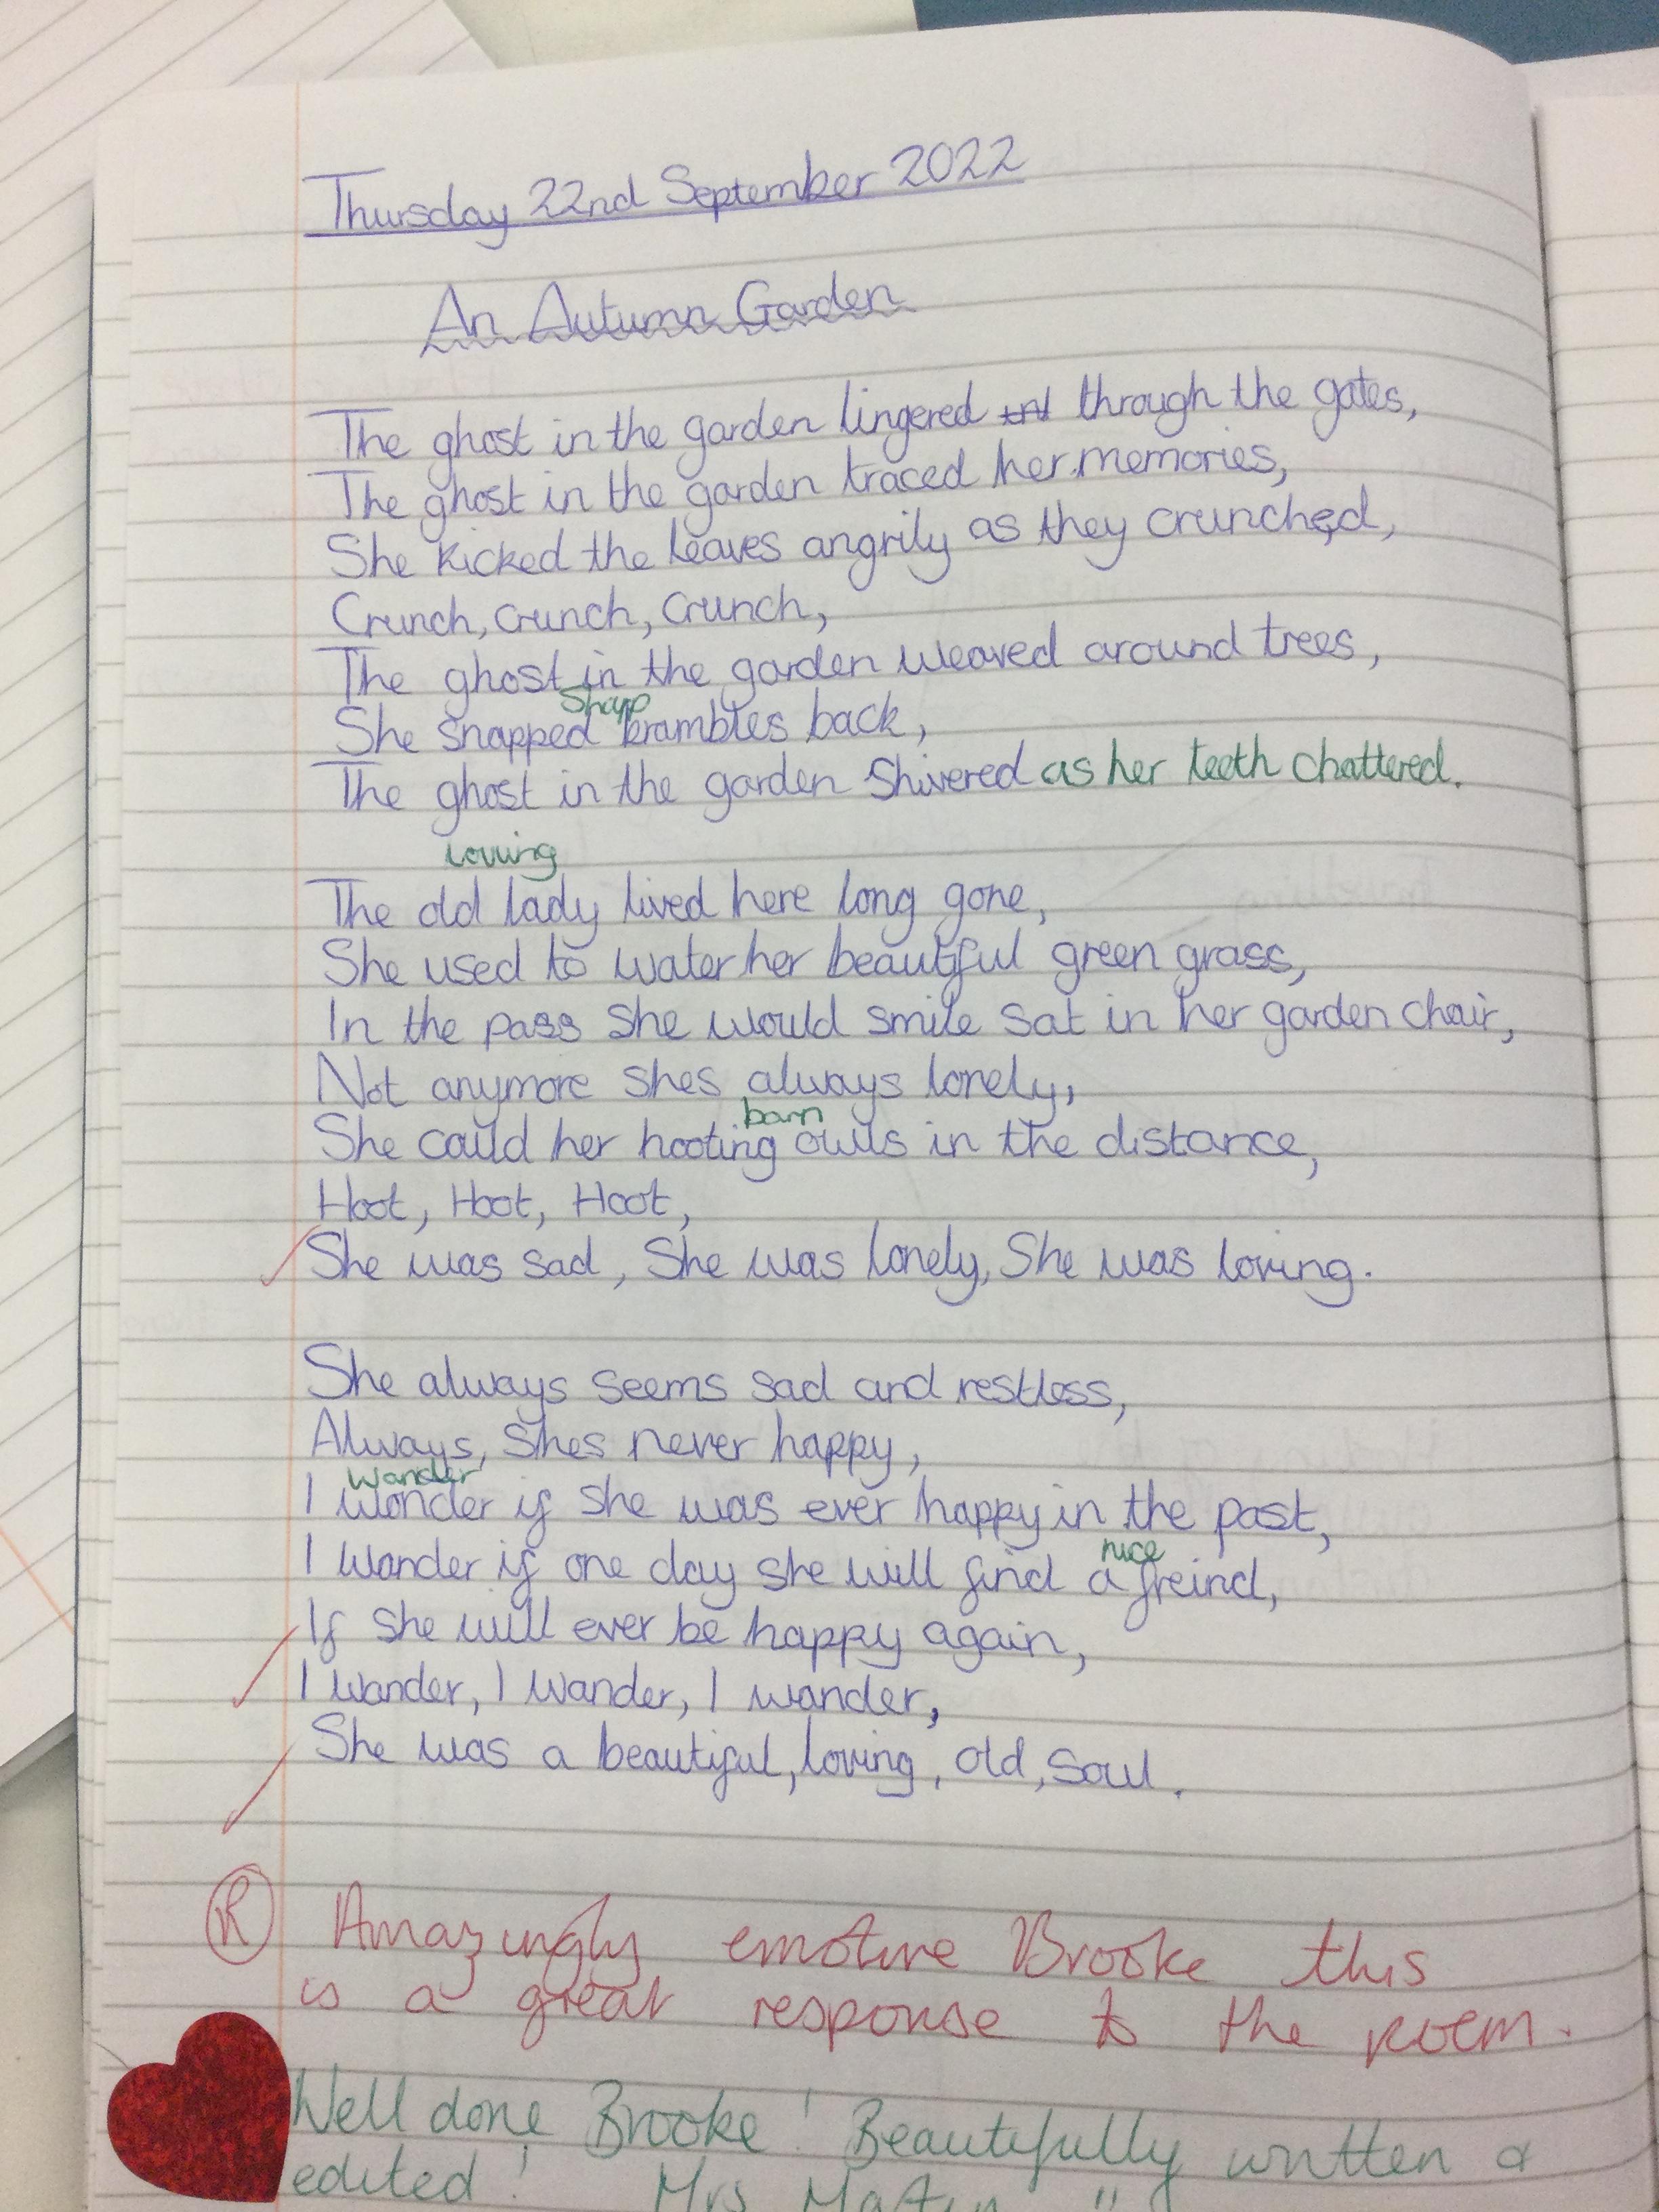 Thursday 22nd September 2022
An Autumn Garden
The ghost in the garden lingered through the gates,
The ghost in the garden traced her memories,
She kicked the leaves angrily as they crunched,
Crunch, crunch, crunch,
The ghost in the garden weaved around trees,
Sharp
She snapped brambles back,
The ghost in the garden shivered as her teeth chattered.
loving
The old lady lived here long gone,
She used to water her beautiful green grass,
In the pass she would smile sat in her garden chair,
Not anymore shes always lonely,
barn
She could her hooting owls in the distance,
Hoot, Hoot, Hoot,
She was sad, She was lonely, She was loving.
She always seems sad and restless,
Always, shes never happy,
wander
I wonder if she was ever happy in the past,
nice
I wander if one day she will find a freind,
If she will ever be happy again,
I wander, I wander, I wander,
She was a beautiful, loving, old, soul.
R Amazingly emotive Brooke this
is a great response to the poem.
Well done Brooke! Beautifully written &
edited! Mrs Martin "